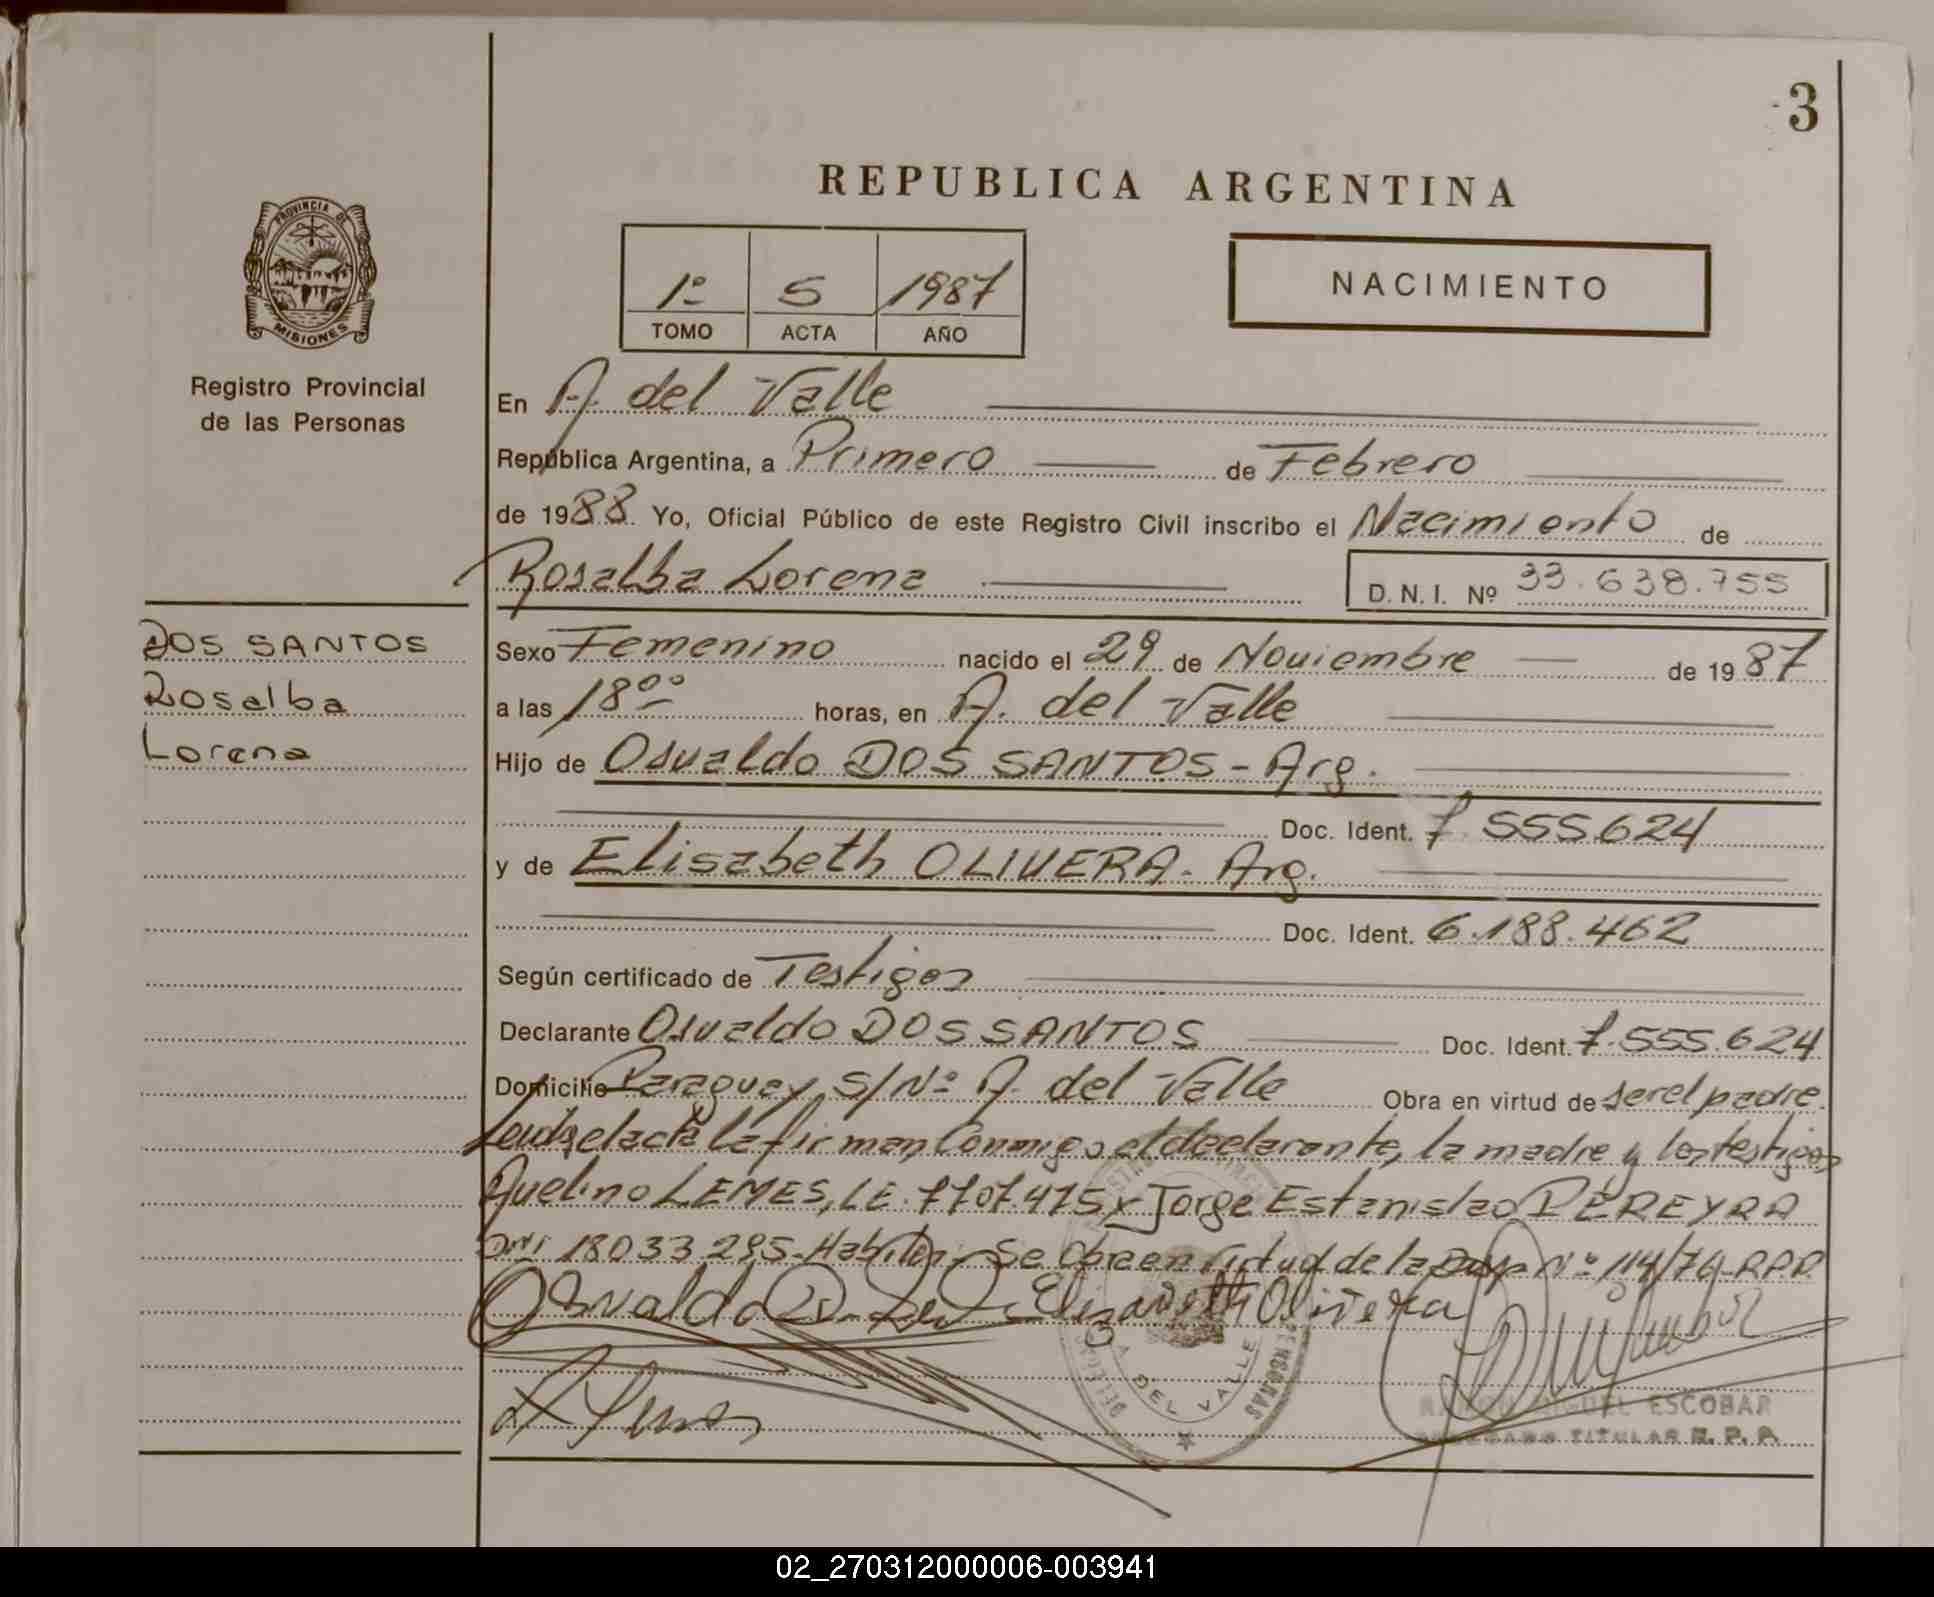 3
REPUBLICA ARGENTINA
PROVINCIA DE
MISIONES
Registro Provincial
de las Personas
1º 5 1987
TOMO ACTA AÑO
NACIMIENTO
En A. del Valle
República Argentina, a Primero de Febrero
de 1988. Yo, Oficial Público de este Registro Civil inscribo el Nacimiento de
Rosalba Lorena
D. N. I. Nº 33.638.755
DOS SANTOS
Rosalba
Lorena
Sexo Femenino nacido el 29 de Noviembre de 1987
a las 18ºº horas, en A. del Valle
Hijo de Osvaldo DOS SANTOS - Arg.
Doc. Ident. 7.555.624
y de Elisabeth OLIVERA - Arg.
Doc. Ident. 6.188.462
Según certificado de Testigos
Declarante Osvaldo DOS SANTOS Doc. Ident. 7.555.624
Domicilio Paraguay S/Nº A. del Valle Obra en virtud de ser el padre.
Leida el acta la firman, Conmigo el declarante, la madre y los testigos
Avelino LEMES, LE. 7707.475 y Jorge Estanislao PEREYRA
DNI 18033.295 - Se Obra en virtud de la Nº 114/76-RPP.
Osvaldo D. Elizabeth Olivera
A DEL VALLE
RAMON MIGUEL ESCOBAR
DELEGADO TITULAR R. P. P.
02_270312000006-003941